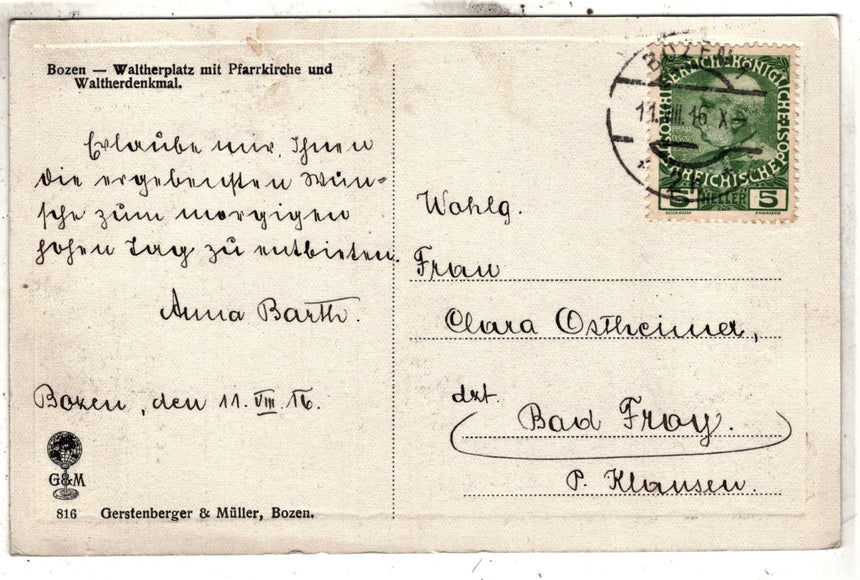 Bozen — Waltherplatz mit Pfarrkirche und
Waltherdenkmal.
Erlaube mir, Ihnen
die ergebensten Wün-
sche zum morgigen
hohen Tag zu entbieten.
Anna Barth.
Bozen, den 11. VIII. 16.
G&M
816 Gerstenberger & Müller, Bozen.
BOZEN 1
11. VIII. 16 X–
KAISERLICHE KÖNIGLICHE
ÖSTERREICHISCHE POST
5 HELLER 5
Wohlg.
Frau
Clara Ostheimer,
dzt.
Bad Froy.
P. Klausen.